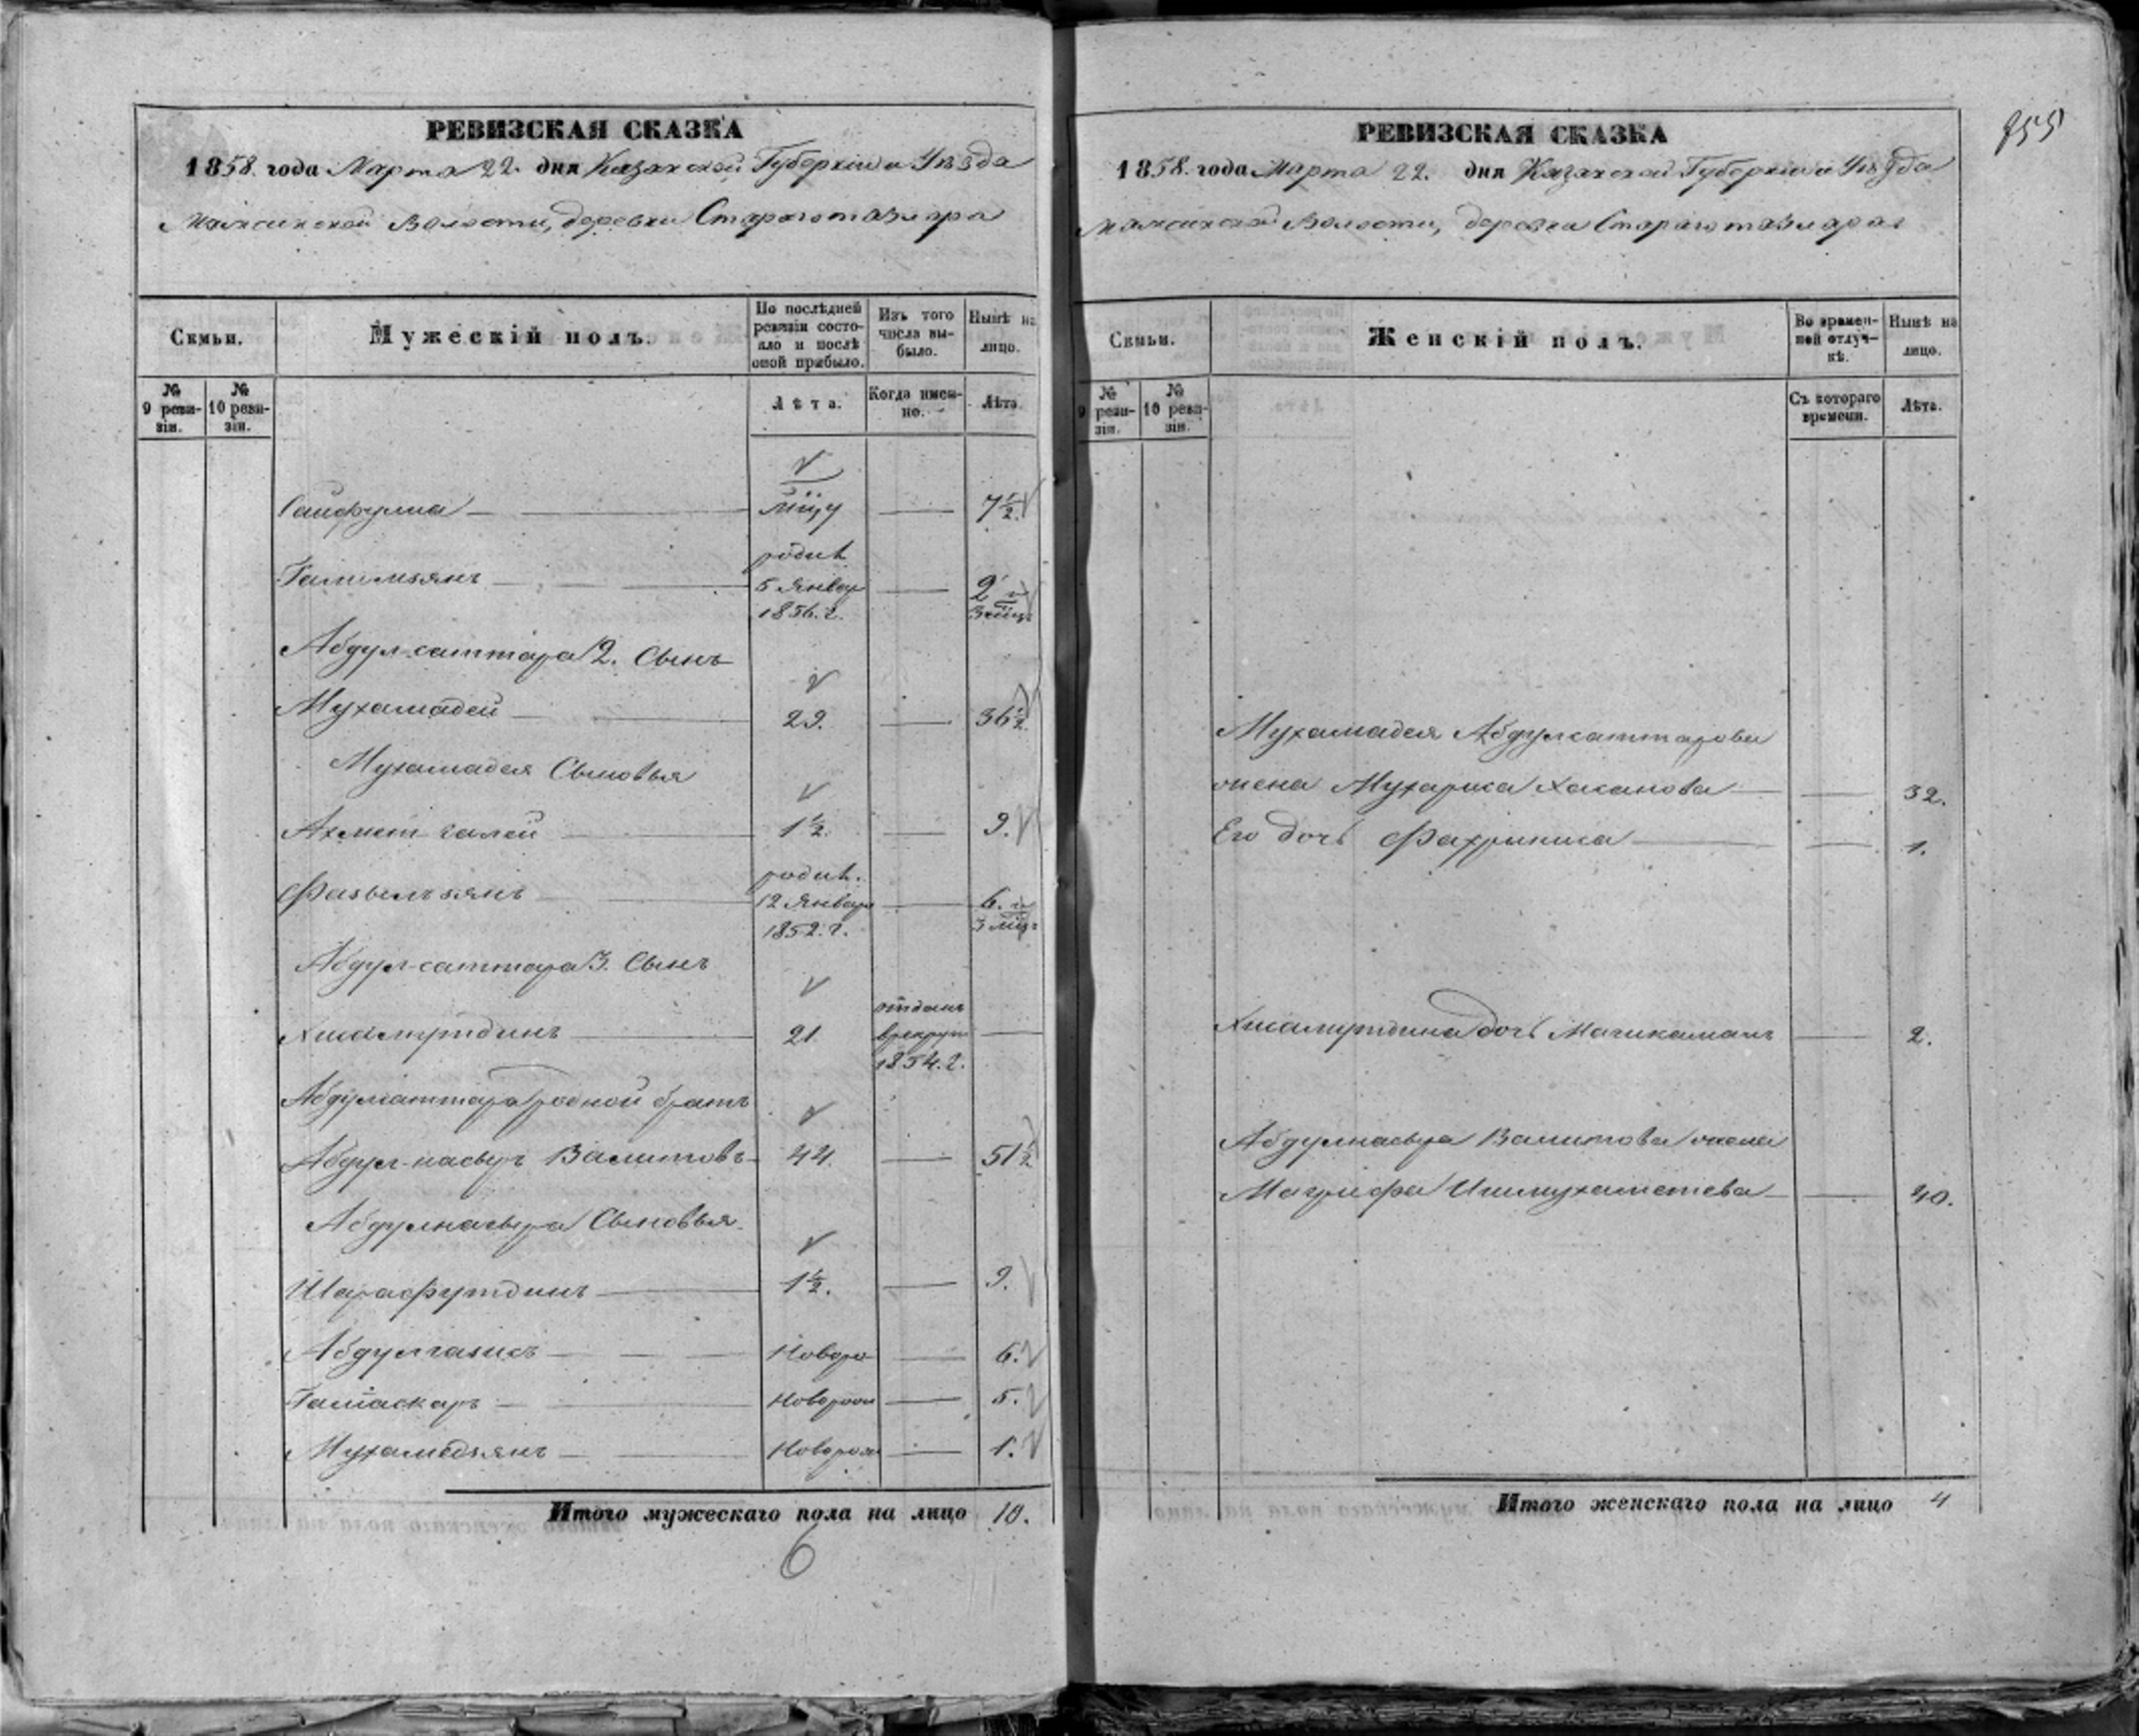 РЕВИЗСКАЯ СКАЗКА
1858. года Марта 22. дня Казанской Губерніи и Уѣзда
Волости, деревни Стараго
Скмьи.
Мужескій полъ.
По послѣдней ревизіи состояло и послѣ оной прибыло.
Изъ того числа выбыло.
Нынѣ на лицо.
№ 9 ревизіи.
№ 10 ревизіи.
Лѣта.
Когда именно.
Лѣта
Сайфулла 7½
Галимзянъ родил. 5 Январ 1856. г. 2 г 3
Абдул-саттара 2. Сынъ
Мухамадей 29. 36½
Мухамадея Сыновья
Ахмет-галей 1½. 9.
Фазылъзянъ родил. 12 Январ 1852. г. 6. г 3
Абдул-саттара 3. Сынъ
Хисамутдинъ 21 отданъ врекруты 1854. г.
Абдулсаттара родной братъ
Абдул-насыръ Валитовъ 44. 51½
Абдулнасыра Сыновья
Шарафутдинъ 1½. 9.
Абдулгазисъ Новоро 6.
Галіаскаръ Новорож 5.
Мухамедзянъ Новорож 1.
Итого мужескаго пола на лицо 10.
6
855
РЕВИЗСКАЯ СКАЗКА
1858. года Марта 22. дня Казанской Губерніи и Уѣзда
Волости, деревни Стараго
Скмьи.
Женскій полъ.
Во времянной отлучкѣ.
Нынѣ на лицо.
№ 9 ревизіи.
№ 10 ревизіи.
Съ котораго времени.
Лѣта.
Мухамадея Абдулсаттарова
жена Хасанова 32.
Его дочь Фахриниса 1.
Хисамутдина дочь 2.
Абдулнасыра Валитова жена
Магрифа Ишмухаметева 40.
Итого женскаго пола на лицо 4